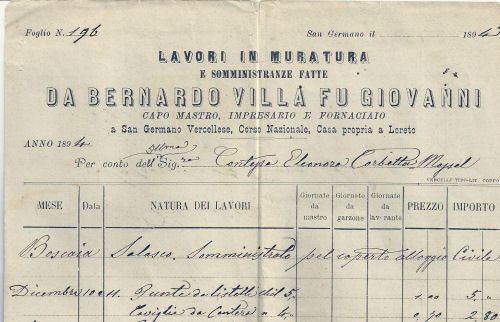 Foglio N. 196 San Germano il 1894
LAVORI IN MURATURA
E SOMMINISTRANZE FATTE
DA BERNARDO VILLÁ FU GIOVANNI
CAPO MASTRO, IMPRESARIO E FORNACIAIO
a San Germano Vercellese, Corso Nazionale, Casa propria a Loreto
ANNO 1894
Illma
Per conto dell'Sig.ra Contessa Eleonora Corbetta
VERCELLI TIPO-LIT. COPPO
MESE Data NATURA DEI LAVORI Giornate da mastro Giornate da garzone Giornate da lavorante PREZZO IMPORTO
Boscaia Salasco. Somministrato pel coperto alloggio Civile
Dicembre 10 Punte da listelli 5. 1.00 5. "
da Cantera 4. 0.70 2.80